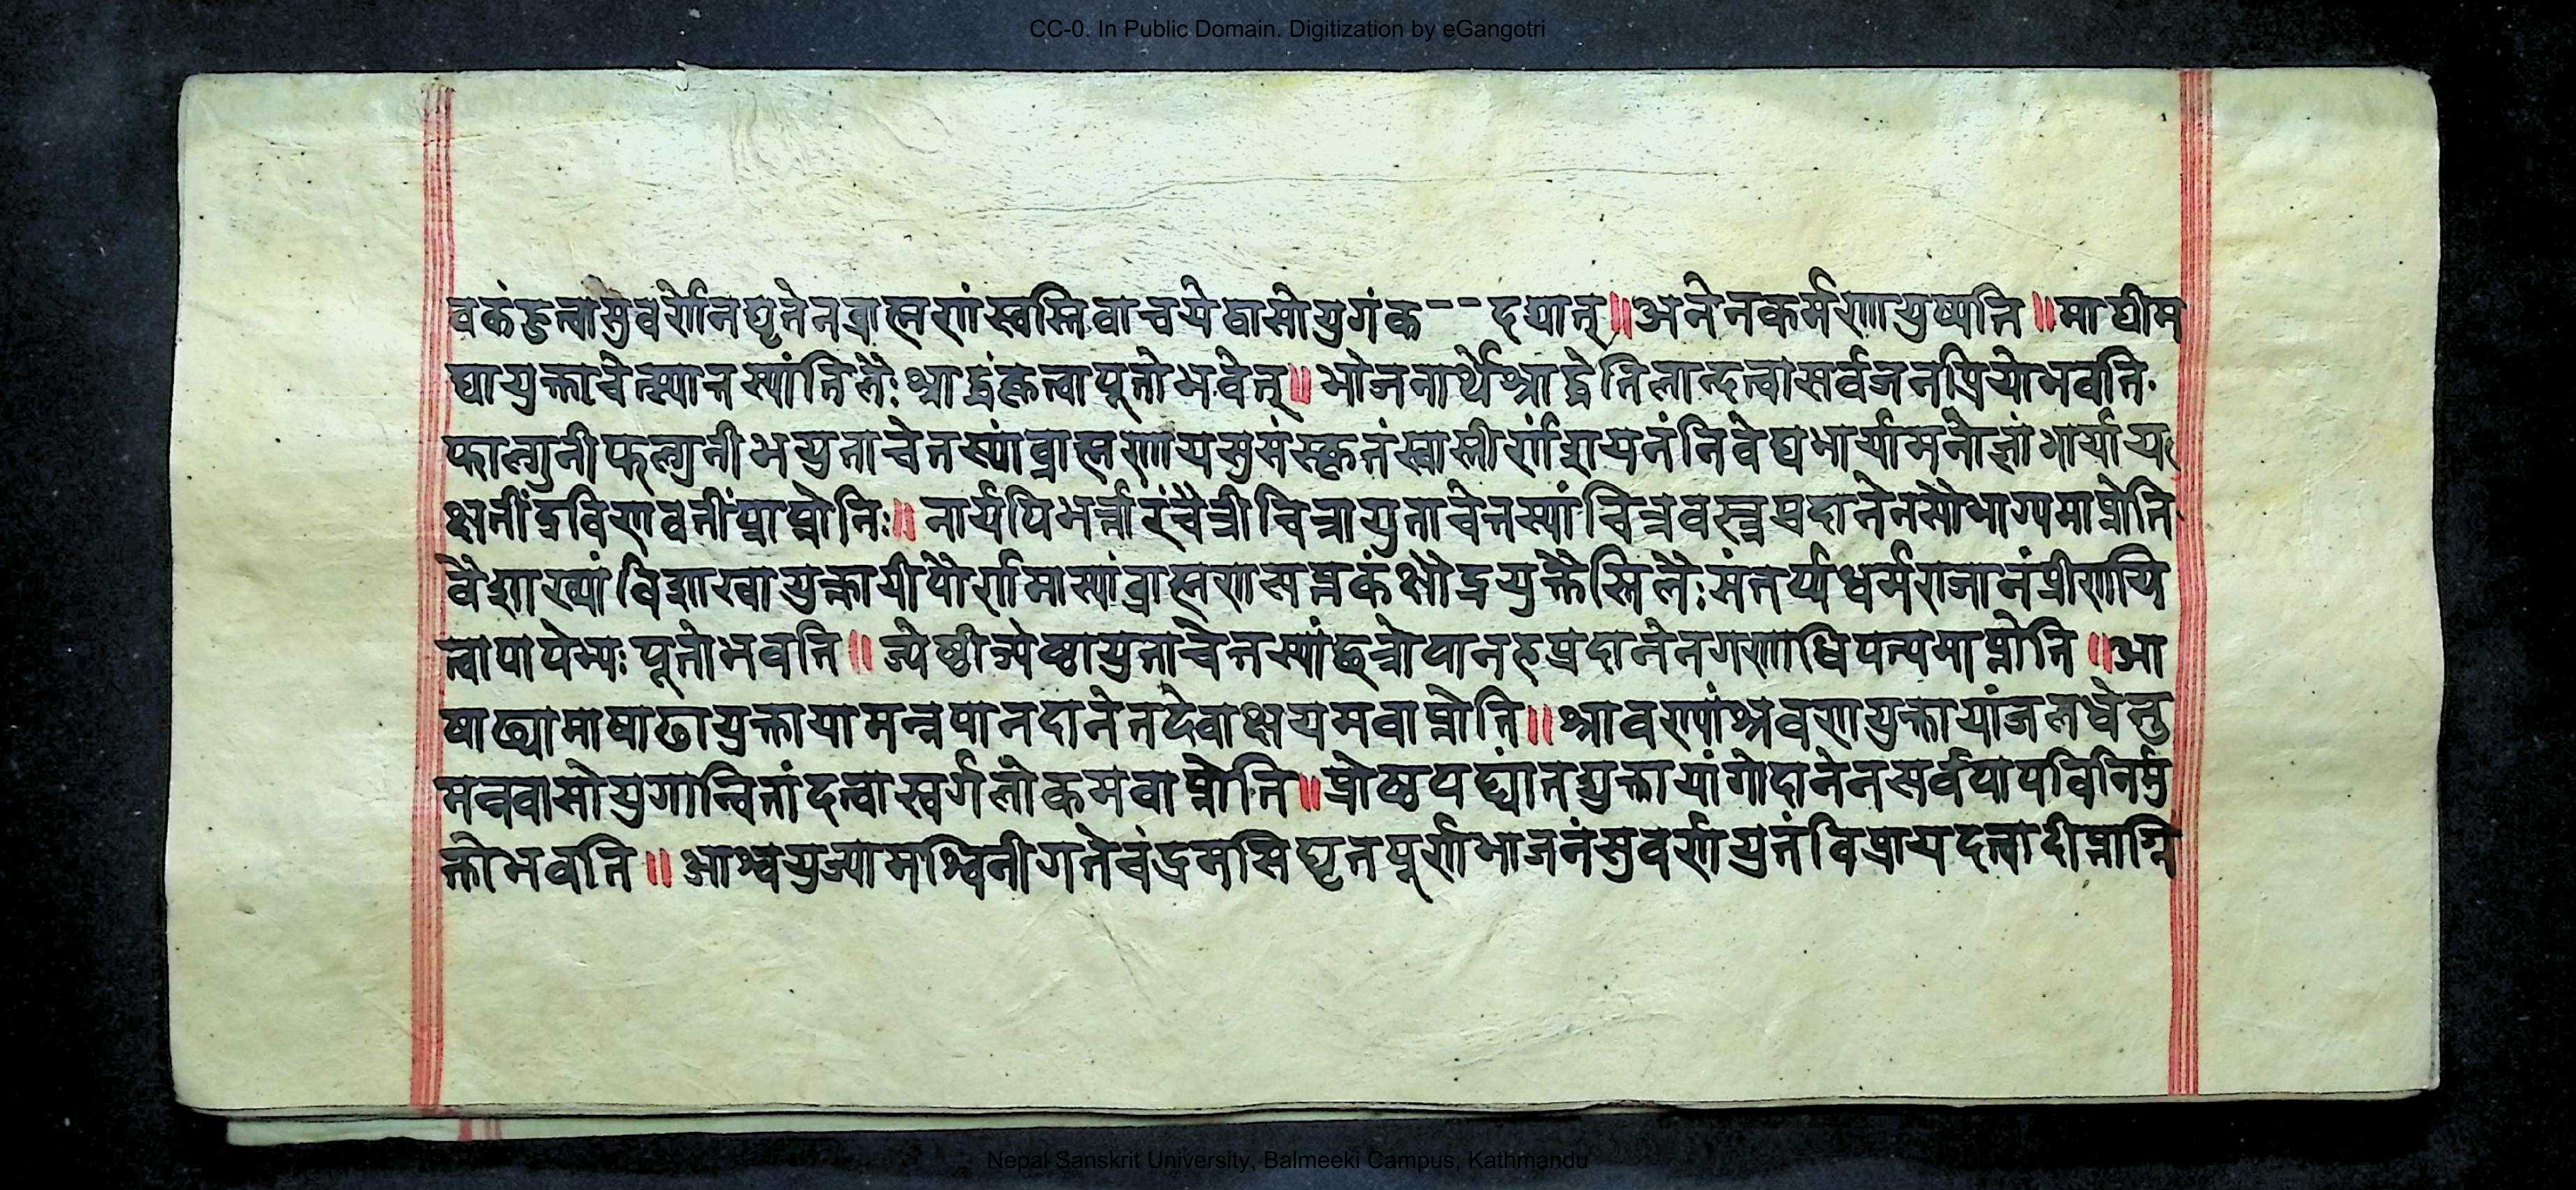 CC-0. In Public Domain. Digitization by eGangotri
वकंहुत्वासुवर्णेनघृतेनब्राह्मणंस्वस्तिवाचयेद्वासोयुगंक--दद्यात्॥अनेनकर्मणायुष्यति॥माघीम
घायुक्ताचेत्स्यात्तस्यांतिलैः श्राद्धंकृत्वापूतोभवेत्॥भोजनार्थेश्राद्धेतिलान्दत्वासर्वजनप्रियोभवति
फाल्गुनीफल्गुनीभयुताचेत्तस्यांब्राह्मणायसुसंस्कृतंस्वास्तीर्णंशयनंनिवेद्यभार्यामनोज्ञांभार्याय
क्षतींद्रविणवतींप्राप्नोतिः॥नार्यपिभर्त्तारंचैत्रीचित्रायुताचेत्तस्यांचित्रवस्त्रप्रदानेनसौभाग्यमाप्नोति
वैशाख्यांविशाखायुक्तायीपौर्णमास्यांब्राह्मणसप्तकंक्षौद्रयुक्तैस्तिलैः संतर्प्यधर्मराजानंप्रीणयि
त्वापापेभ्यः पूतोभवति॥ज्येष्ठीज्येष्ठायुताचेत्तस्यांछत्रोपानहप्रदानेनगणाधिपत्यमाप्नोति॥आ
षाढ्यामाषाढायुक्तायामन्नपानदानेनदेवाक्षयमवाप्नोति॥श्रावण्यांश्रवणयुक्तायांजलधेनु
मन्नवासोयुगान्वितांदत्वास्वर्गलोकमवाप्नोति॥प्रोष्ठपद्यांतद्युक्तायांगोदानेनसर्वपापविनिर्मु
क्तोभवति॥आश्वयुज्यामश्विनीगतेचंद्रमसिघृतपूर्णभाजनंसुवर्णयुतंविप्रायदत्वादीप्ताग्नि
Nepal Sanskrit University, Balmeeki Campus, Kathmandu